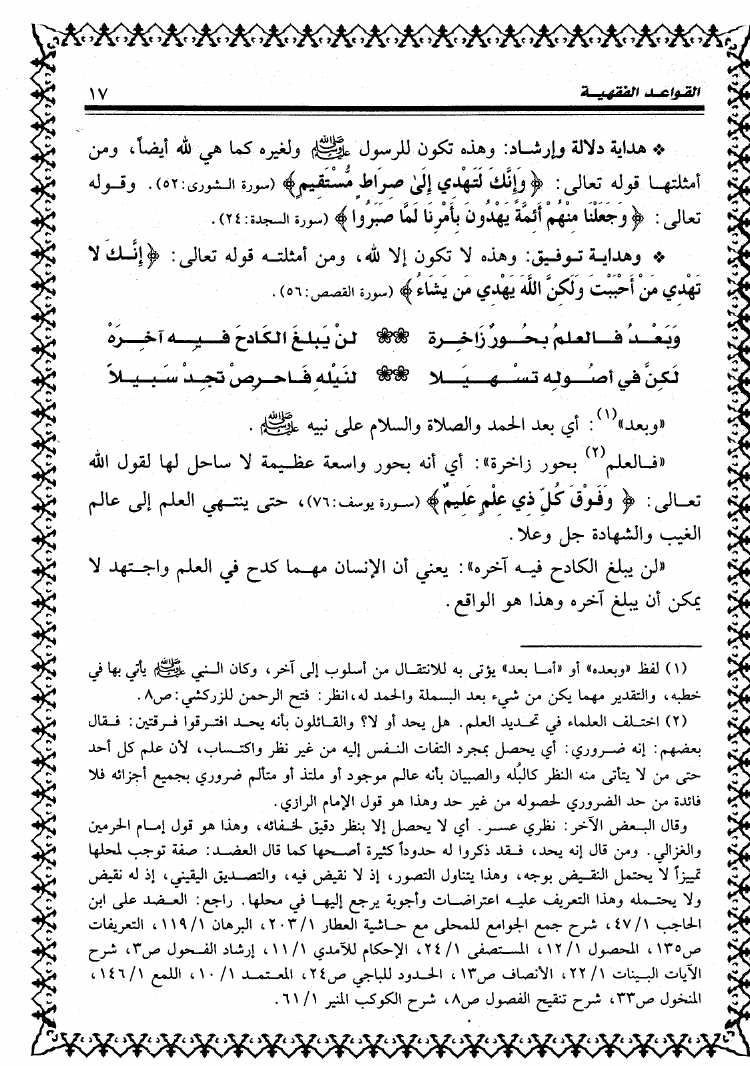 القواعد الفقهية ١٧
❖ هداية دلالة وإرشاد: وهذه تكون للرسول ﷺ ولغيره كما هي لله أيضاً، ومن
أمثلتها قوله تعالى: ﴿وَإِنَّكَ لَتَهْدِي إِلَىٰ صِرَاطٍ مُّسْتَقِيمٍ﴾ (سورة الشورى:٥٢). وقوله
تعالى: ﴿وَجَعَلْنَا مِنْهُمْ أَئِمَّةً يَهْدُونَ بِأَمْرِنَا لَمَّا صَبَرُوا﴾ (سورة السجدة:٢٤).
❖ وهداية توفيق: وهذه لا تكون إلا لله، ومن أمثلته قوله تعالى: ﴿إِنَّكَ لا
تَهْدِي مَنْ أَحْبَبْتَ وَلَكِنَّ اللَّهَ يَهْدِي مَن يَشَاءُ﴾ (سورة القصص:٥٦).
وَبَعْدُ فالعلمُ بحورٌ زَاخِرة لنْ يَبلغَ الكادحَ فيه آخرَهْ
لَكنَّ في أصُوله تسْهيَلا لنَيْله فَاحرصْ تجدْ سَبيلاً
«وبعد»(١): أي بعد الحمد والصلاة والسلام على نبيه ﷺ.
«فالعلم(٢) بحور زاخرة»: أي أنه بحور واسعة عظيمة لا ساحل لها لقول الله
تعالى: ﴿وَفَوْقَ كُلِّ ذِي عِلْمٍ عَلِيمٌ﴾ (سورة يوسف:٧٦)، حتى ينتهي العلم إلى عالم
الغيب والشهادة جل وعلا.
«لن يبلغ الكادح فيه آخره»: يعني أن الإنسان مهما كدح في العلم واجتهد لا
يمكن أن يبلغ آخره وهذا هو الواقع.
(١) لفظ «وبعده» أو «أما بعد» يؤتى به للانتقال من أسلوب إلى آخر، وكان النبي ﷺ يأتي بها في
خطبه، والتقدير مهما يكن من شيء بعد البسملة والحمد له،انظر: فتح الرحمن للزركشي:ص٨.
(٢) اختلف العلماء في تحديد العلم. هل يحد أو لا؟ والقائلون بأنه يحد افترقوا فرقتين: فقال
بعضهم: إنه ضروري: أي يحصل بمجرد التفات النفس إليه من غير نظر واكتساب، لأن علم كل أحد
حتى من لا يتأتى منه النظر كالبُله والصبيان بأنه عالم موجود أو ملتذ أو متألم ضروري بجميع أجزائه فلا
فائدة من حد الضروري لحصوله من غير حد وهذا هو قول الإمام الرازي.
وقال البعض الآخر: نظري عسر. أي لا يحصل إلا بنظر دقيق لخفائه، وهذا هو قول إمام الحرمين
والغزالي. ومن قال إنه يحد، فقد ذكروا له حدوداً كثيرة أصحها كما قال العضد: صفة توجب لمحلها
تمييزاً لا يحتمل النقيض بوجه، وهذا يتناول التصور، إذ لا نقيض فيه، والتصديق اليقيني، إذ له نقيض
ولا يحتمله وهذا التعريف عليه اعتراضات وأجوبة يرجع إليها في محلها. راجع: العضد على ابن
الحاجب ١/ ٤٧، شرح جمع الجوامع للمحلى مع حاشية العطار ١/ ٢٠٣، البرهان ١/ ١١٩، التعريفات
ص١٣٥، المحصول ١/ ١٢، المستصفى ١/ ٢٤، الإحكام للآمدي ١/ ١١، إرشاد الفحول ص٣، شرح
الآيات البينات ١/ ٢٢، الأنصاف ص١٣، الحدود للباجي ص٢٤، المعتمد ١/ ١٠، اللمع ١/ ١٤٦،
المنخول ص٣٣، شرح تنقيح الفصول ص٨، شرح الكوكب المنير ١/ ٦١.